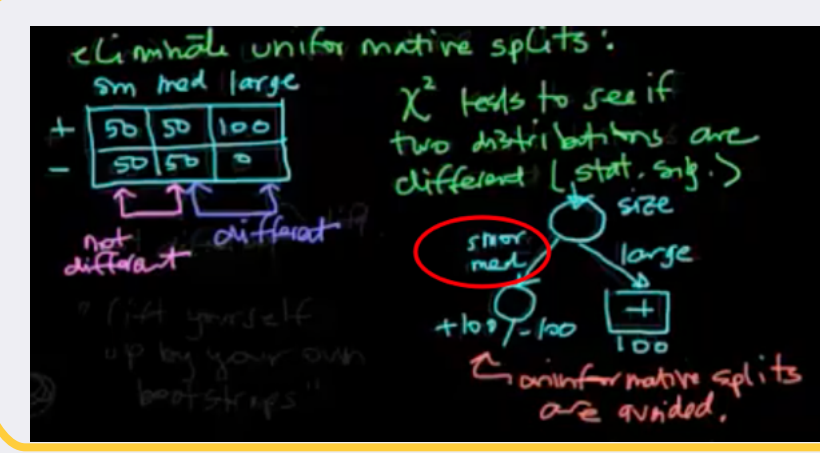 eliminate uniformative splits:
sm med large
+ 50 50 100
- 50 50 0
not different
different
χ² tests to see if
two distributions are
different (stat. sig.)
size
sm or
med
large
+100/-100
+
100
uninformative splits
are avoided.
"lift yourself
up by your own
bootstraps"